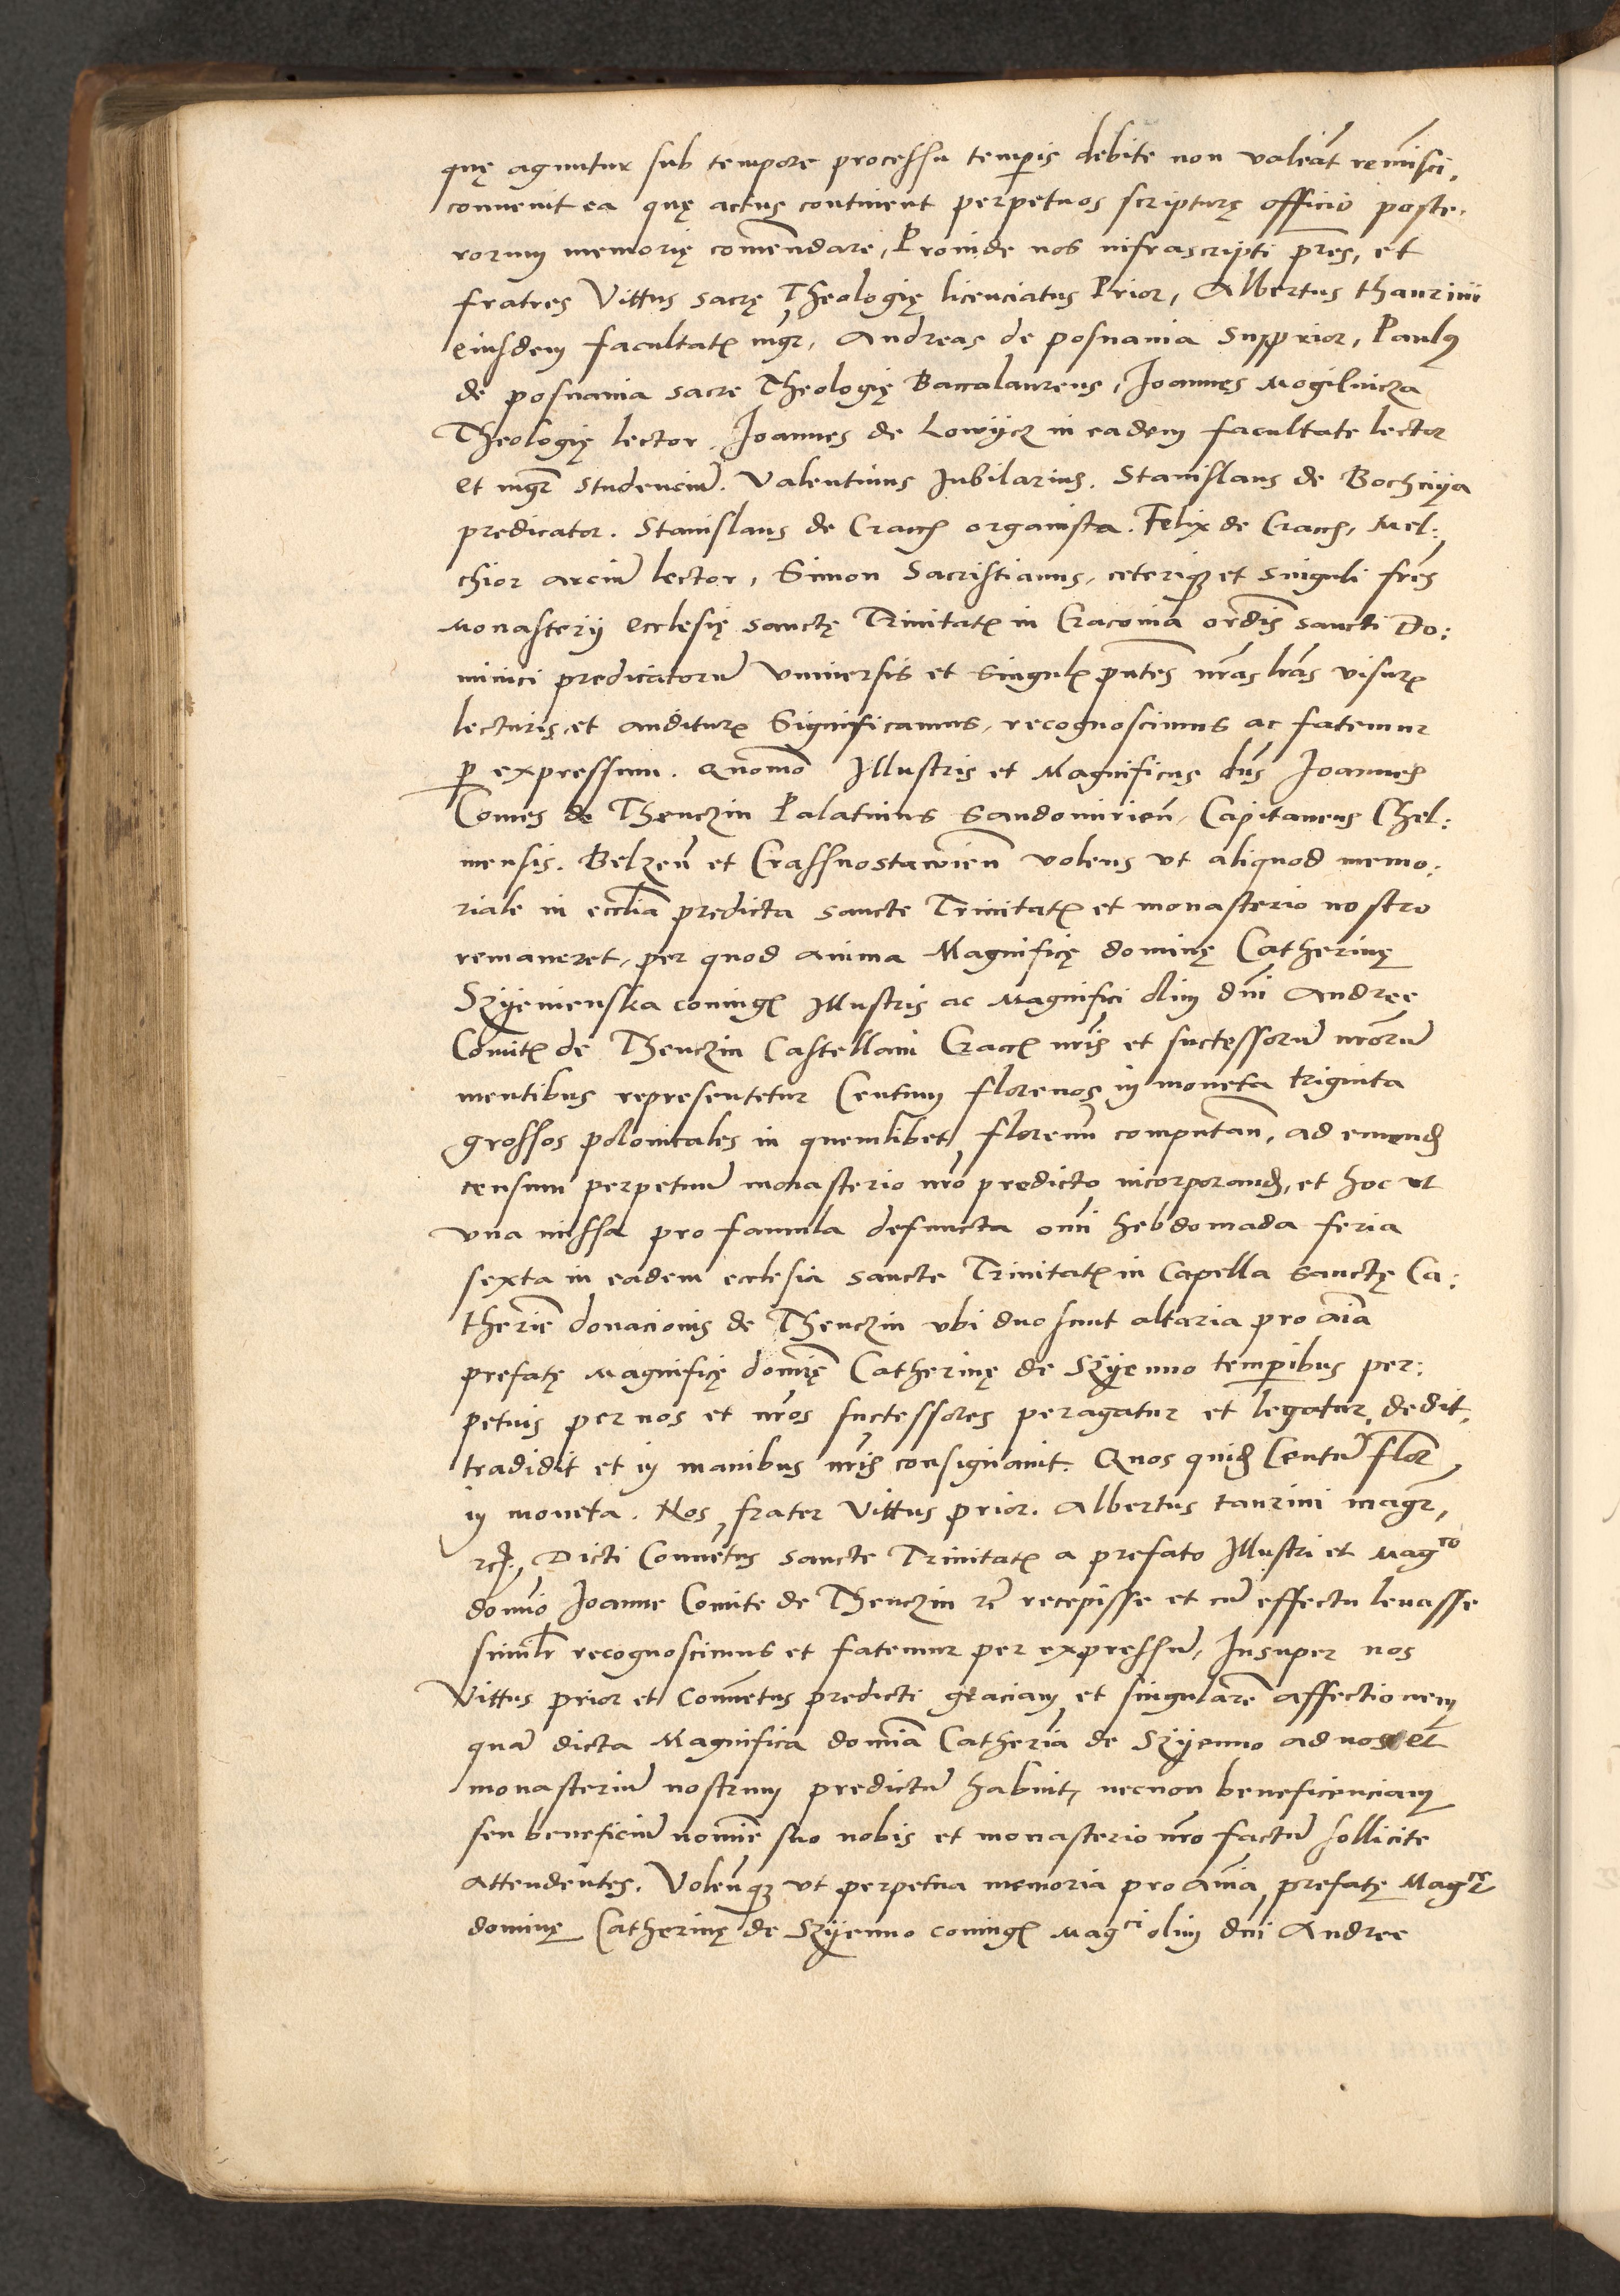 quę aguntur sub tempore processu temp̲is debite non valeāt remīsci,
conuenit ea quę actus continent perpetuos scripturę officio poste,
rorum memorię com̄endare, Proinde nos infrascripti pr̄es, et
fratres Vittus sacrę Theologię licenciatus Prior, Albertus thaurini
eiusdem facultatꝭ mgr̄, Andreas de posnania Supprior, Paulꝰ
de posnania sacre Theologię Baccalaureus, Joannes Mogilnicza
Theologię lector, Joannes de Lowycz in eadem facultate lector
et mgr̄ studenciū. Valentinus Jubilarius. Stanislaus de Bochniya
predicator. Stanislaus de Cracꝭ organista. Felix de Cracꝭ, Mel:
chior arciū lector, Simon Sacristianus, ceteriqꝫ et singuli fr̄es
Monasterij ecclesię sanctę Trinitatꝭ in Cracouia ord̄is sancti Do:
minici predicatorū Vniuersis et singulꝭ pn̄tes nr̄as lr̄as visurꝭ
lecturis, et auditurꝭ Significamus, recognoscimus ac fatemur
ꝑ expressum. Quomō Illustris et Magnificus dn̄s Joannes
Comes de Thenczin Palatinus Sandomirien̄, Capitaneus Chel:
mensis. Belzen̄ et Crassnostawien̄ volens vt aliquod memo:
riale in eccl̄ia predicta sancte Trinitatꝭ et monasterio nostro
remaneret, per quod anima Magnificę dominę Catherinę
Szyenienska coniugꝭ Illustris ac Magnifici olim dn̄i Andree
Comitꝭ de Thenczin Castellani Cracꝭ nr̄is et successorū nr̄orū
mentibus representetur Centum florenos in moneta triginta
grossos polonicales in quemlibet florenum computan̄, ad emendꝭ
censum perpetuū monasterio nr̄o predicto incorporandꝭ, et hoc vt
vna missa pro famula defuncta om̄i hebdomada feria
sexta in eadem ecclesia sancte Trinitatꝭ in Capella sanctę Ca:
therin̄e donacionis de Thenczin vbi duo sunt altaria pro aīa
prefatę Magnificę domīę Catherinę de Szyenno temp̲ibus per:
petuis per nos et nr̄os successores peragatur et legatur, dedit,
tradidit et in manibus nr̄is consignauit. Quos quidꝭ Centū flor̄
in moneta. Nos frater Vittus prior. Albertus taurini magr̄,
⁊cꝭ. Dicti Conuētus sancte Trinitatꝭ a prefato Illustri et Magco
domīo Joanne Comite de Thenczin ⁊c̄ recepisse et cū effectu leuasse
similr̄ recognoscimus et fatemur per expressū, Insuper nos
Vittus prior et Conuētus predicti graciam et singularē affectionem
quā dicta Magnifica domīa Catherīa de Szyenno ad nos et
monasteriū nostrum predictū habuit, necnon beneficenciam
seu beneficiū nomīe suo nobis et monasterio nr̄o factū sollicite
attendentes. Volen̄qꝫ vt perpetua memoria pro aīa prefatę Magcę
dominę Catherinę de Szyenno coniugꝭ Magci olim dn̄i Andree